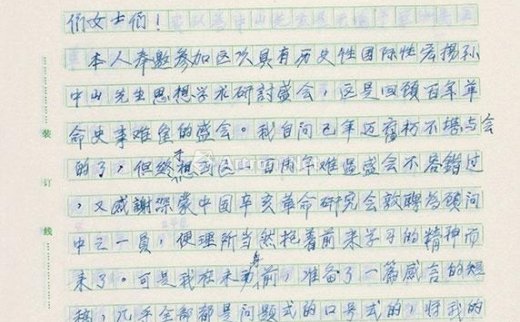 们女士们！
本人奉邀参加这次具有历史性国际性宏揚孙
中山先生思想学术研討盛会，这是回顾百年革
命史事难隹的盛会。我自问已年迈腐朽不堪与会
的了，但终于想到这一百周年难遇盛会不容錯过
，又感謝深蒙中国辛亥革命研究会敦聘為顾问
中之一員，便理所当然抱着前来学习的精神而
来了。可是我在未动身前，准备了一篇感言的短
稿，几乎全部都是问題式的口号式的，将我的
装
订
线